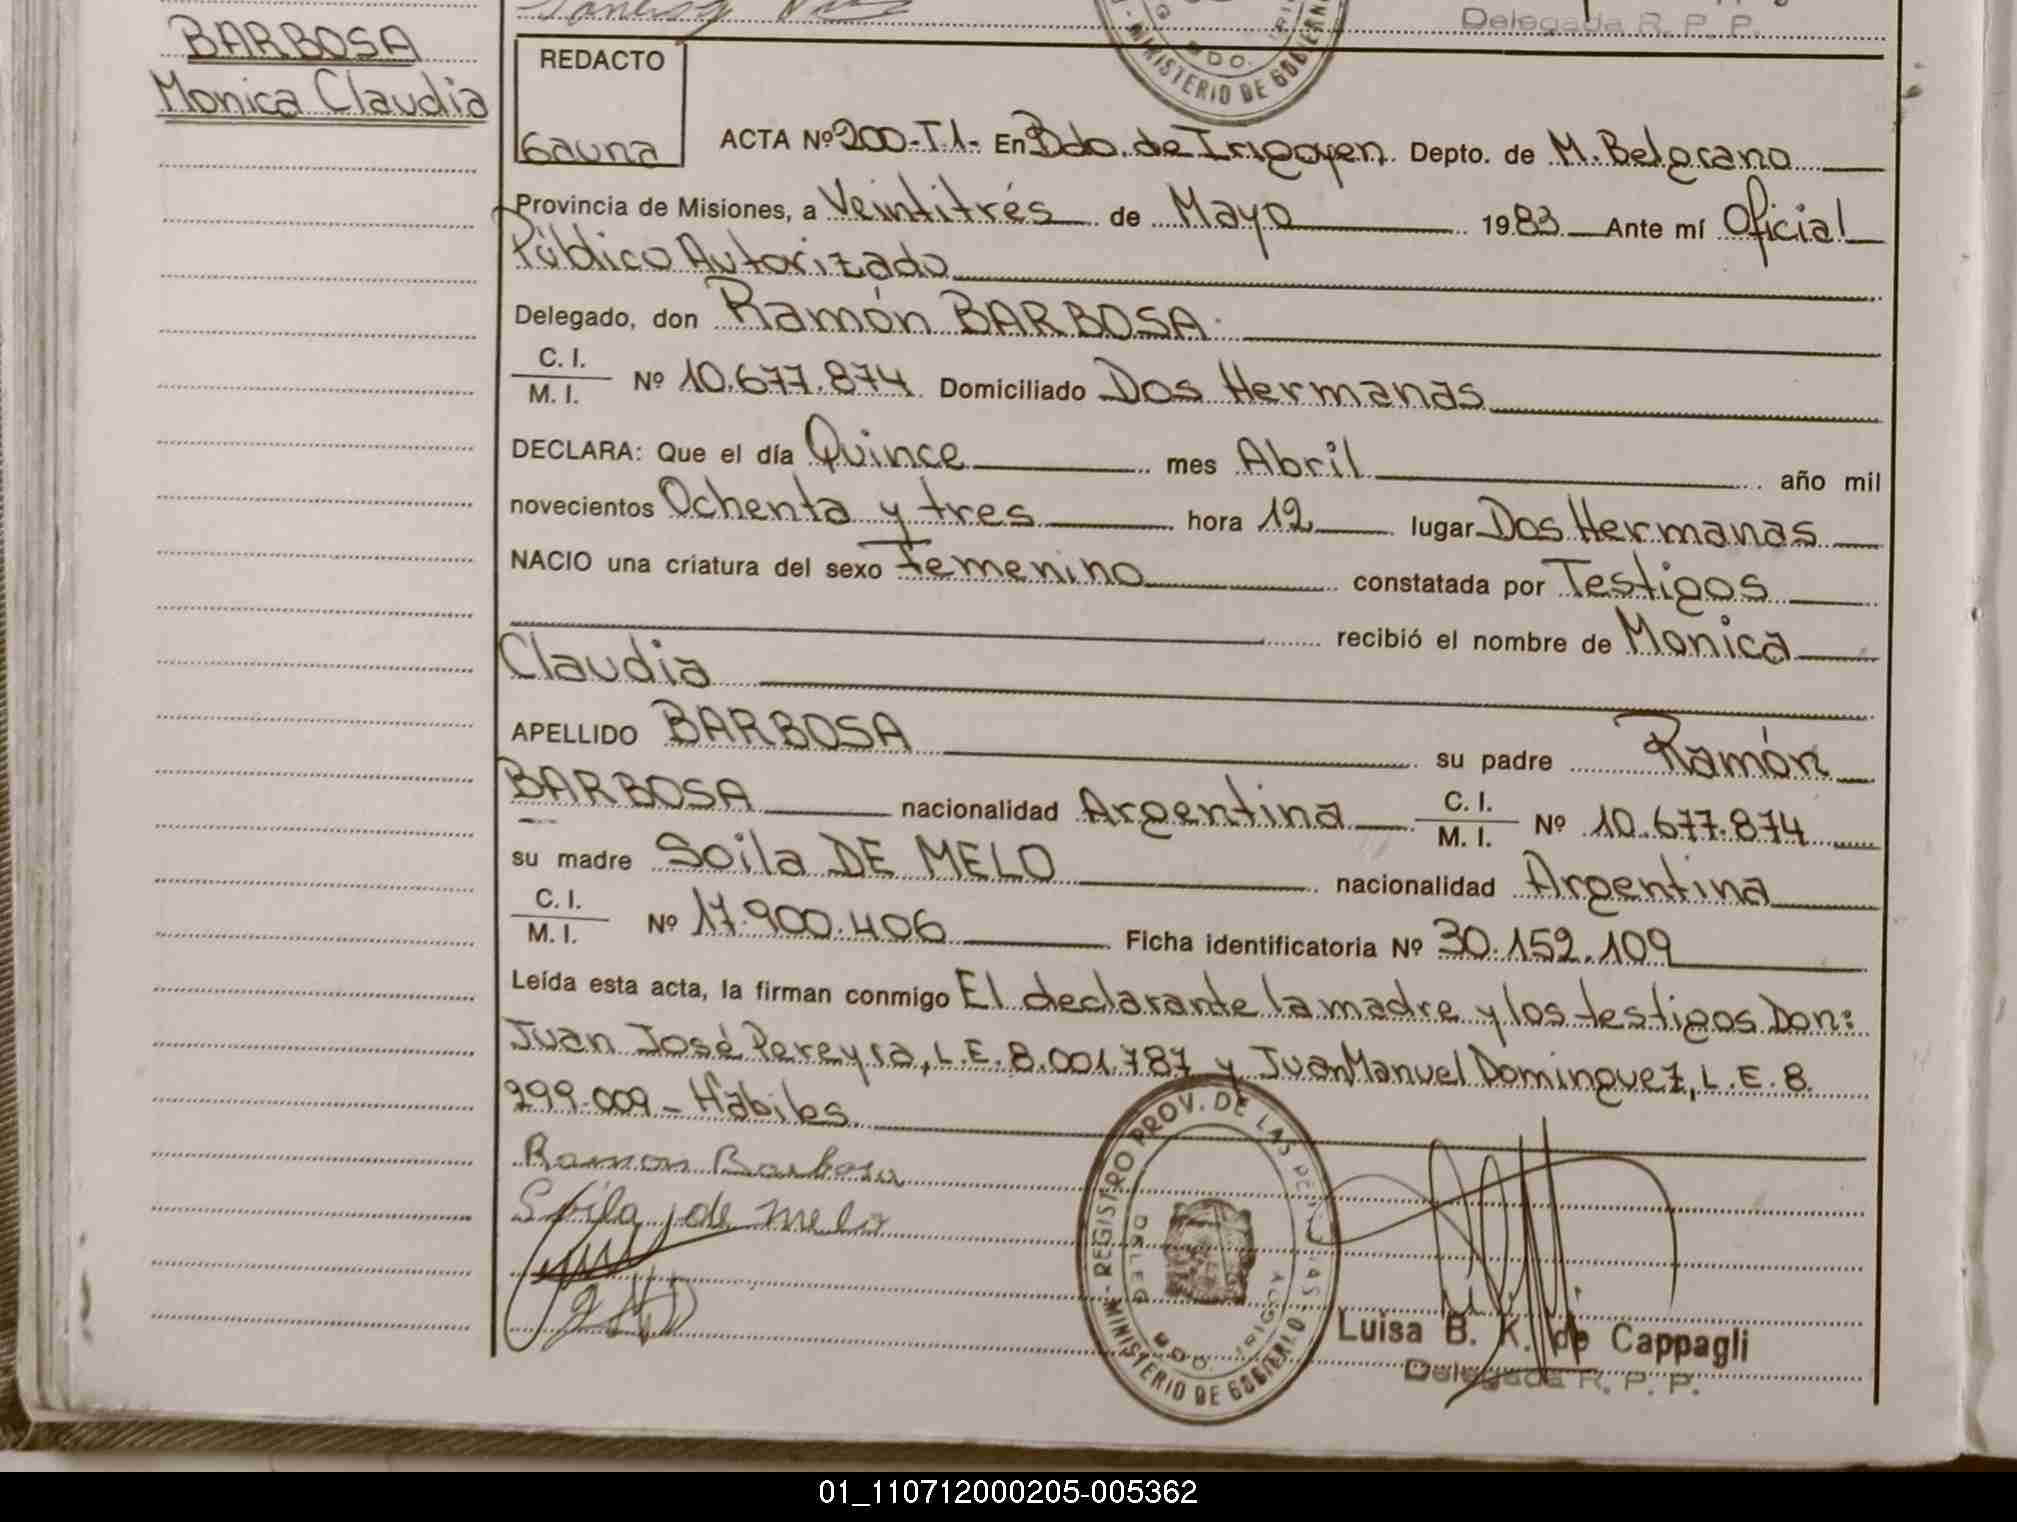 BARBOSA
Monica Claudia
Delegada R. P. P.
MINISTERIO DE GOBIERN
BDO.
REDACTO
Gauna
ACTA Nº 200-T.1- En Bdo. de Irigoyen Depto. de M. Belgrano
Provincia de Misiones, a Veintitrés de Mayo 1983 Ante mí Oficial
Público Autorizado
Delegado, don Ramón BARBOSA.
C. I.
M. I. Nº 10.677.874 Domiciliado Dos Hermanas
DECLARA: Que el día Quince mes Abril año mil
novecientos Ochenta y tres hora 12 lugar Dos Hermanas
NACIO una criatura del sexo femenino constatada por Testigos
recibió el nombre de Monica
Claudia
APELLIDO BARBOSA su padre Ramón
BARBOSA nacionalidad Argentina C. I. M. I. Nº 10.677.874
su madre Soila DE MELO nacionalidad Argentina
C. I.
M. I. Nº 17.900.406 Ficha identificatoria Nº 30.152.109
Leída esta acta, la firman conmigo El declarante la madre y los testigos Don:
Juan José Pereyra, L.E. 8.001.787 y Juan Manuel Dominguez, L.E. 8.
299.009 - Hábiles.
Ramon Barbosa
Soila de melo
REGISTRO PROV. DE LAS PERSONAS
MINISTERIO DE GOBIERNO
DELEG
BDO. IRIGOY
Luisa B. K. de Cappagli
Delegada R. P. P.
01_110712000205-005362